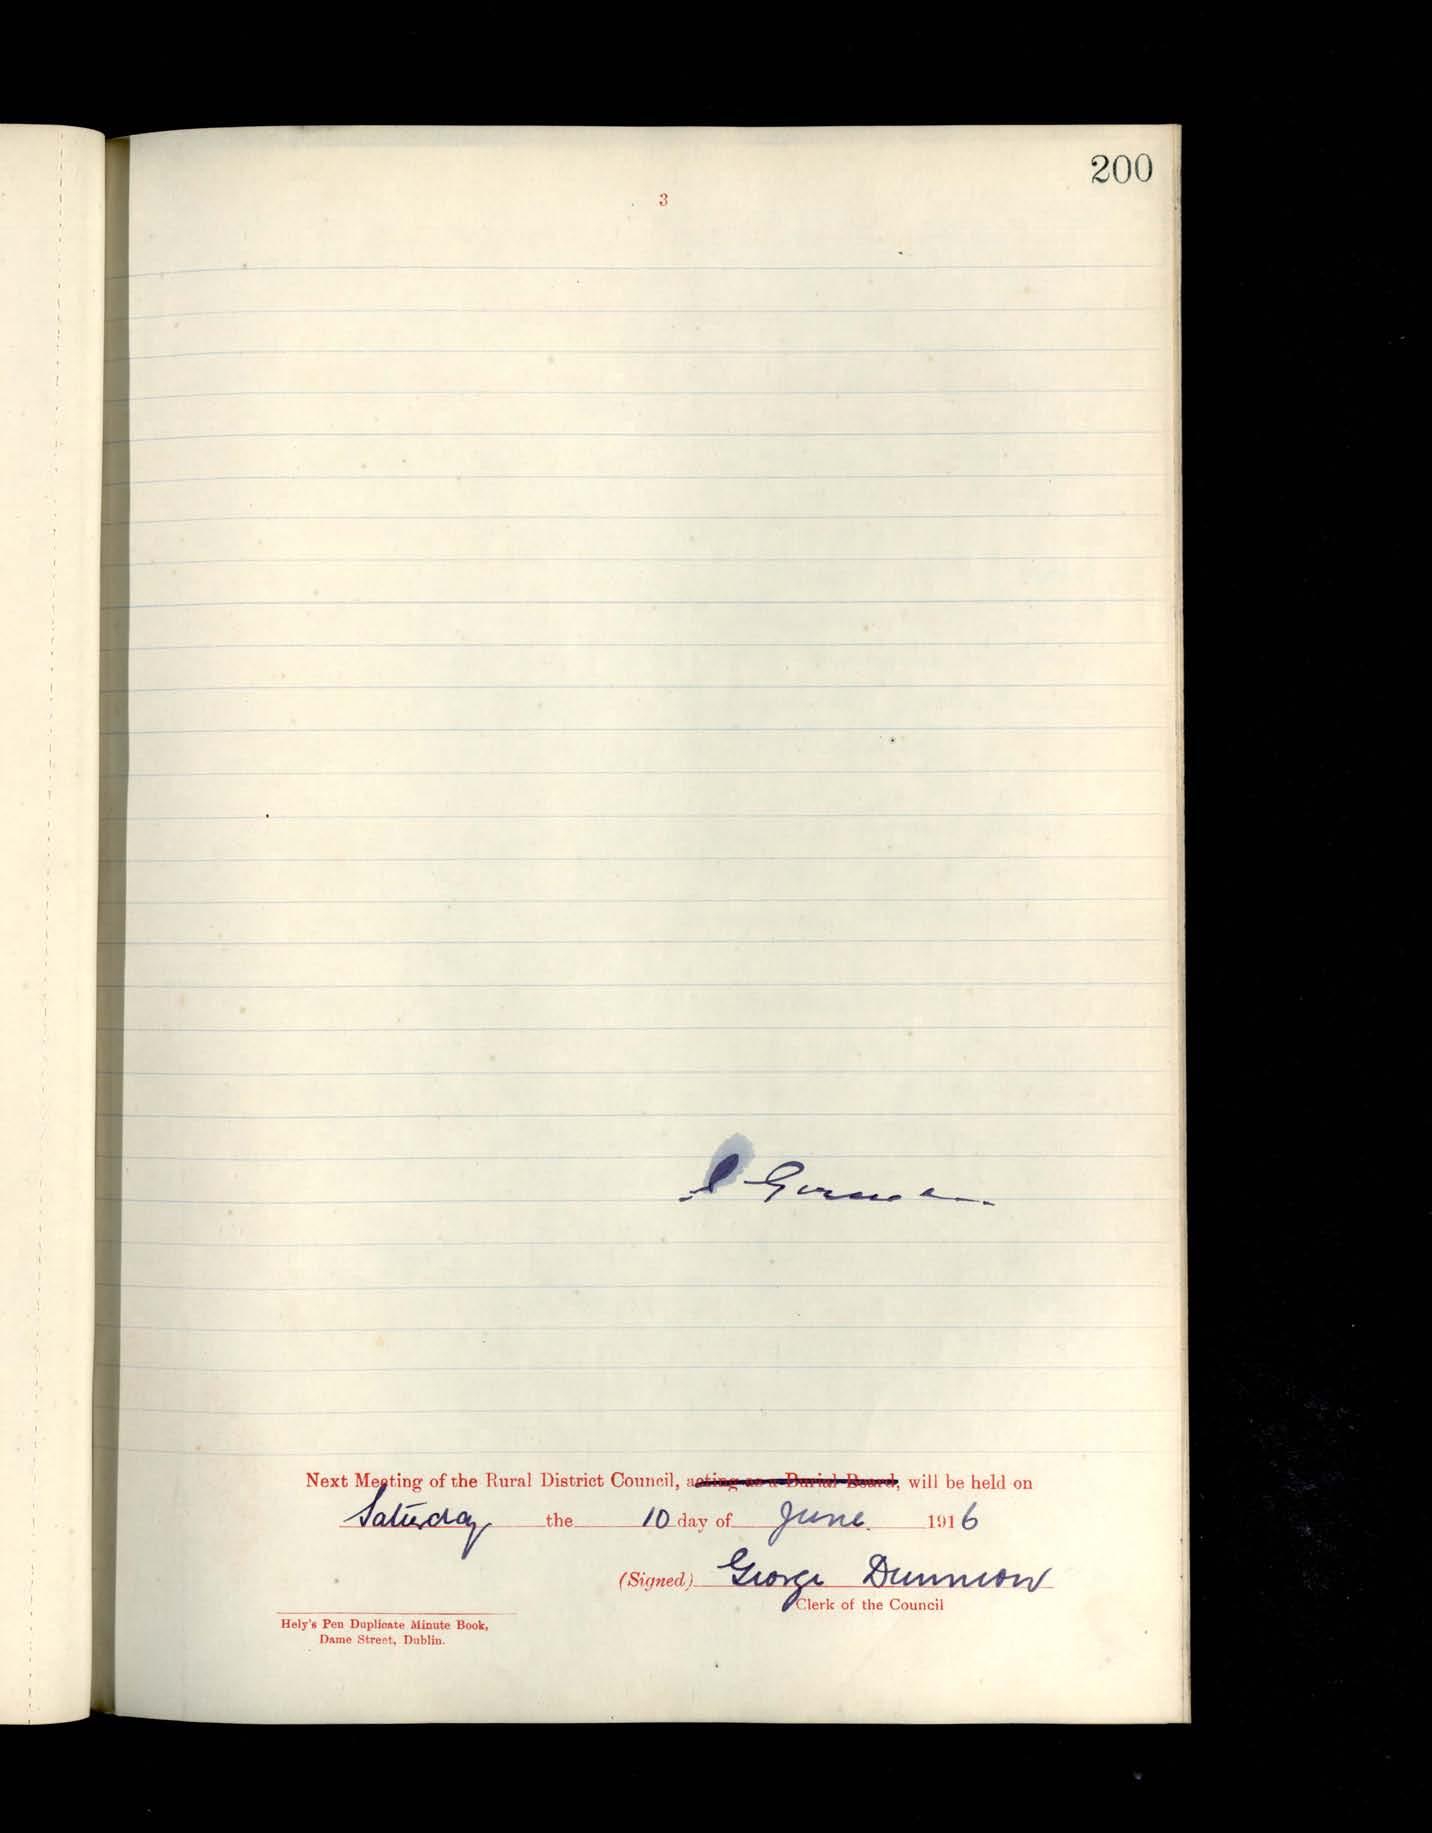 200
3
Next Meeting of the Rural District Council, acting as a Burial Board, will be held on
Saturday the 10 day of June 1916
(Signed) George
Clerk of the Council
Hely's Pen Duplicate Minute Book,
Dame Street, Dublin.